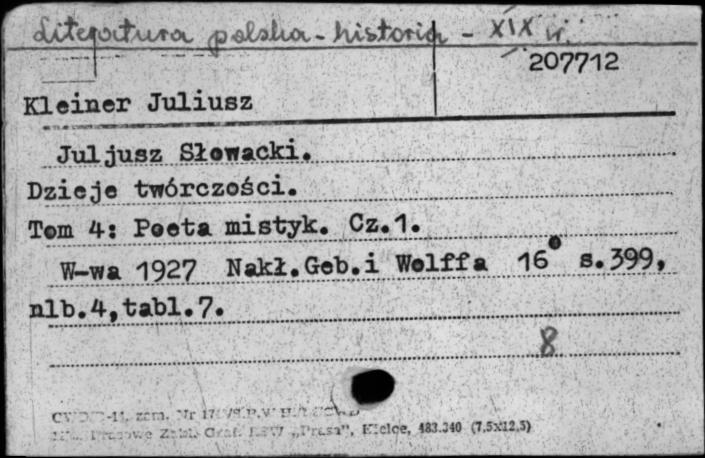 Literatura polska - historia - XIX w.
207712
Kleiner Juliusz
Juljusz Słowacki.
Dzieje twórczości.
Tom 4: Poeta mistyk. Cz.1.
W-wa 1927 Nakł.Geb.i Wolffa 16° s.399,
nlb.4,tabl.7.
8
zam. Nr
Graf. RSW „Prasa”, Kielce, 483.340 (7,5x12,5)